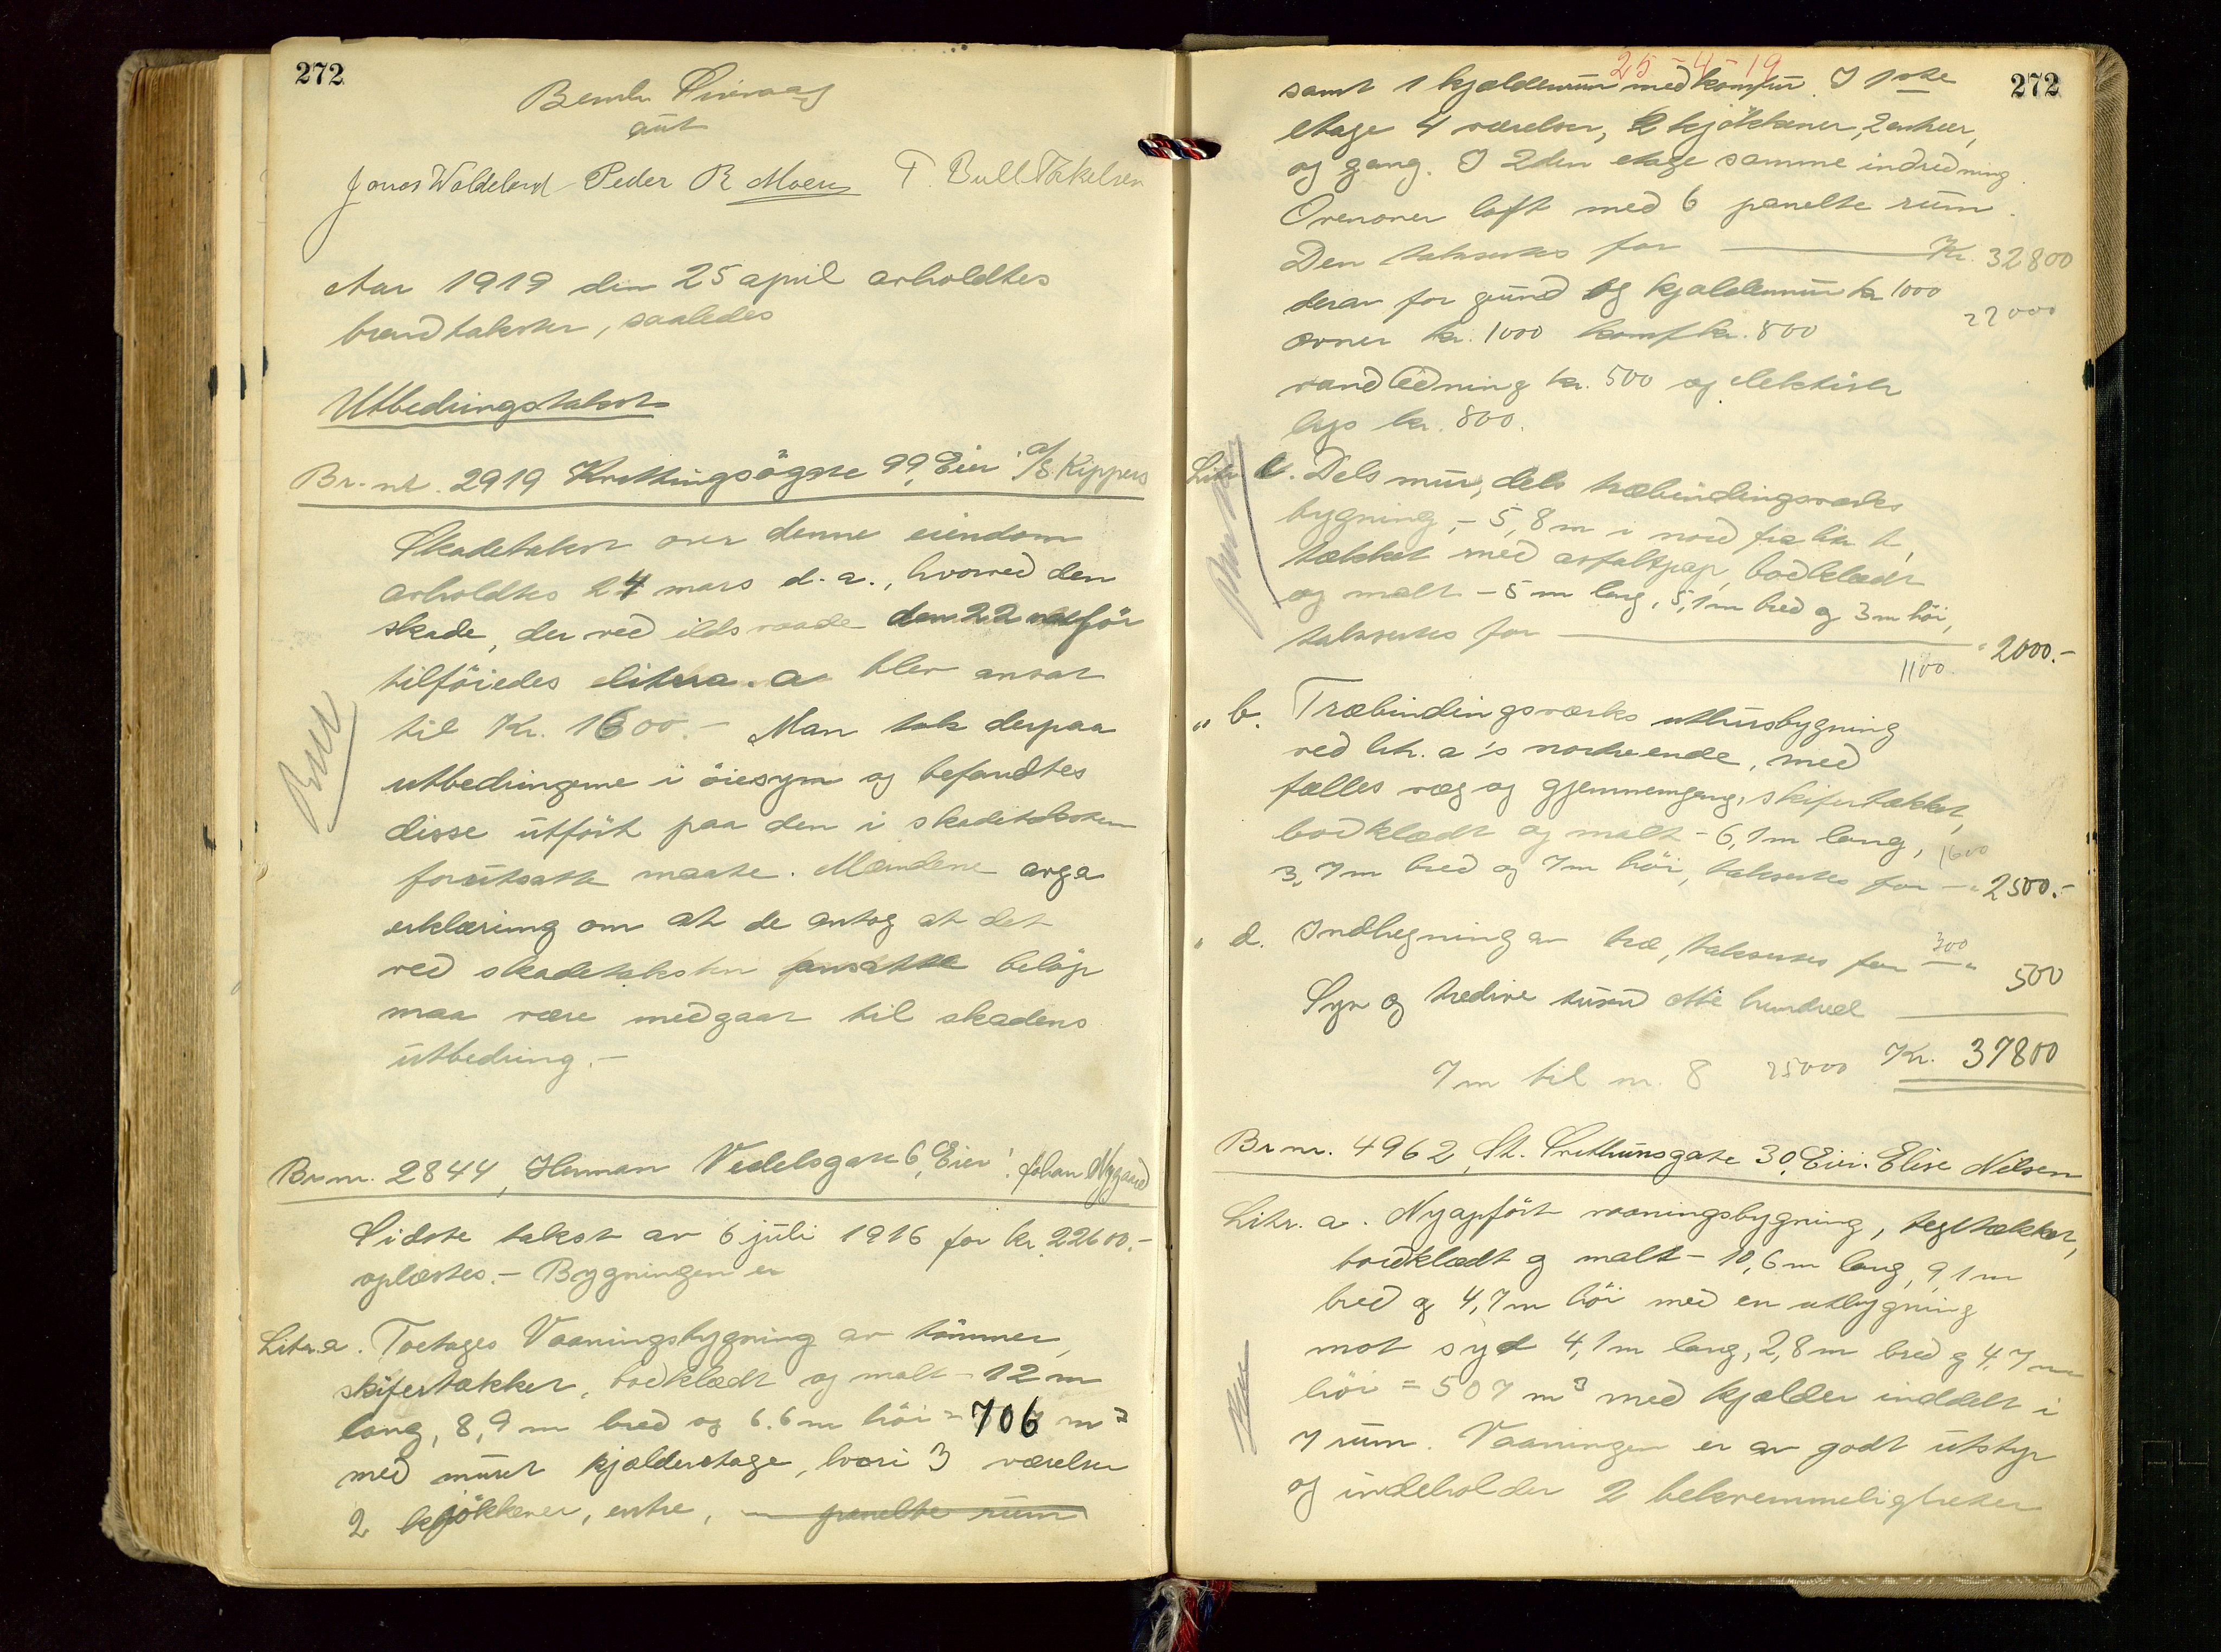 272
aut
Jonas Woldeland Peder R Moen T. Bull Takelsen
Aar 1919 den 25 april avholdtes
brandtakster, saaledes
Utbedringstakst
Br. nr. 2919 Kvitsingsögate 99, Eier: A/S Kippers
Skadetakst over denne eiendom
avholdtes 24 mars d. a., hvorved den
skade, der ved ildsvaade den 22 før
tilföiedes litra a blev ansat
til Kr. 1600.- Man tok derpaa
utbedringerne i öiesyn og befandtes
disse utfört paa den i skadetaksten
forutsatte maate. Mændene avga
erklæring om at de antog at det
ved skadetaksten ansatte belöp
maa være medgaat til skadens
utbedring.-
Br nr. 2844, Herman Vedelsgate 6, Eier: Johan Nygaard
Sidste takst av 6 juli 1916 for kr. 22600.-
oplæstes.- Bygningen er
Litr. a. Toetages Vaaningsbygning av tömmer,
skifertækket, bordklædt og malt - 12 m
lang, 8,9 m bred og 6.6 m höi = 706 m³
med muret kjælderetage, hvori 3 værelser
2 kjökkener, entre, panelte rum
25-4-19
272
samt 1 kjælderrum med komfur. I 1ste
etage 4 værelser, 2 kjökkener, 2 entreer,
og gang. I 2den etage samme indredning.
Ovenover loft med 6 panelte rum.
Den takseres for Kr. 32800
derav for grund og kjældermur kr 1000
22000
ovner kr. 1000 komf kr. 800
vandledning kr. 500 og elektrisk
lys kr. 800.
Litr c. Dels mur, dels træbindingsverks
bygning, - 5,8 m i nord fra litr b,
tækket med asfaltpap, bordklædt
og malt - 5 m lang, 5,1 m bred og 3 m höi,
takseres for " 2000.-
1100
" b. Træbindingsværks uthusbygning
ved litr. a's nordre ende, med
fælles væg og gjennemgang, skifertækket,
bordklædt og malt - 6,1 m lang,
1600
3,7 m bred og 7 m höi, takseres for - " 2500.-
" d. Indhegning av træ, takseres for " 500
300
Syv og tredive tusind otte hundred
Kr. 37800
7 m til nr. 8 25000
Br nr. 4962, St. Svithunsgate 30, Eier: Elise Nilsen
Litr. a. Nyopfört vaaningsbygning, tegltækket,
bordklædt og malt - 10,6 m lang, 9,1 m
bred og 4,7 m höi med en utbygning
mot syd 4,1 m lang, 2,8 m bred og 4,7 m
höi = 507 m³ med kjælder inddelt i
7 rum. Vaaningen er av godt utstyr
og indeholder 2 bekvemmeligheter